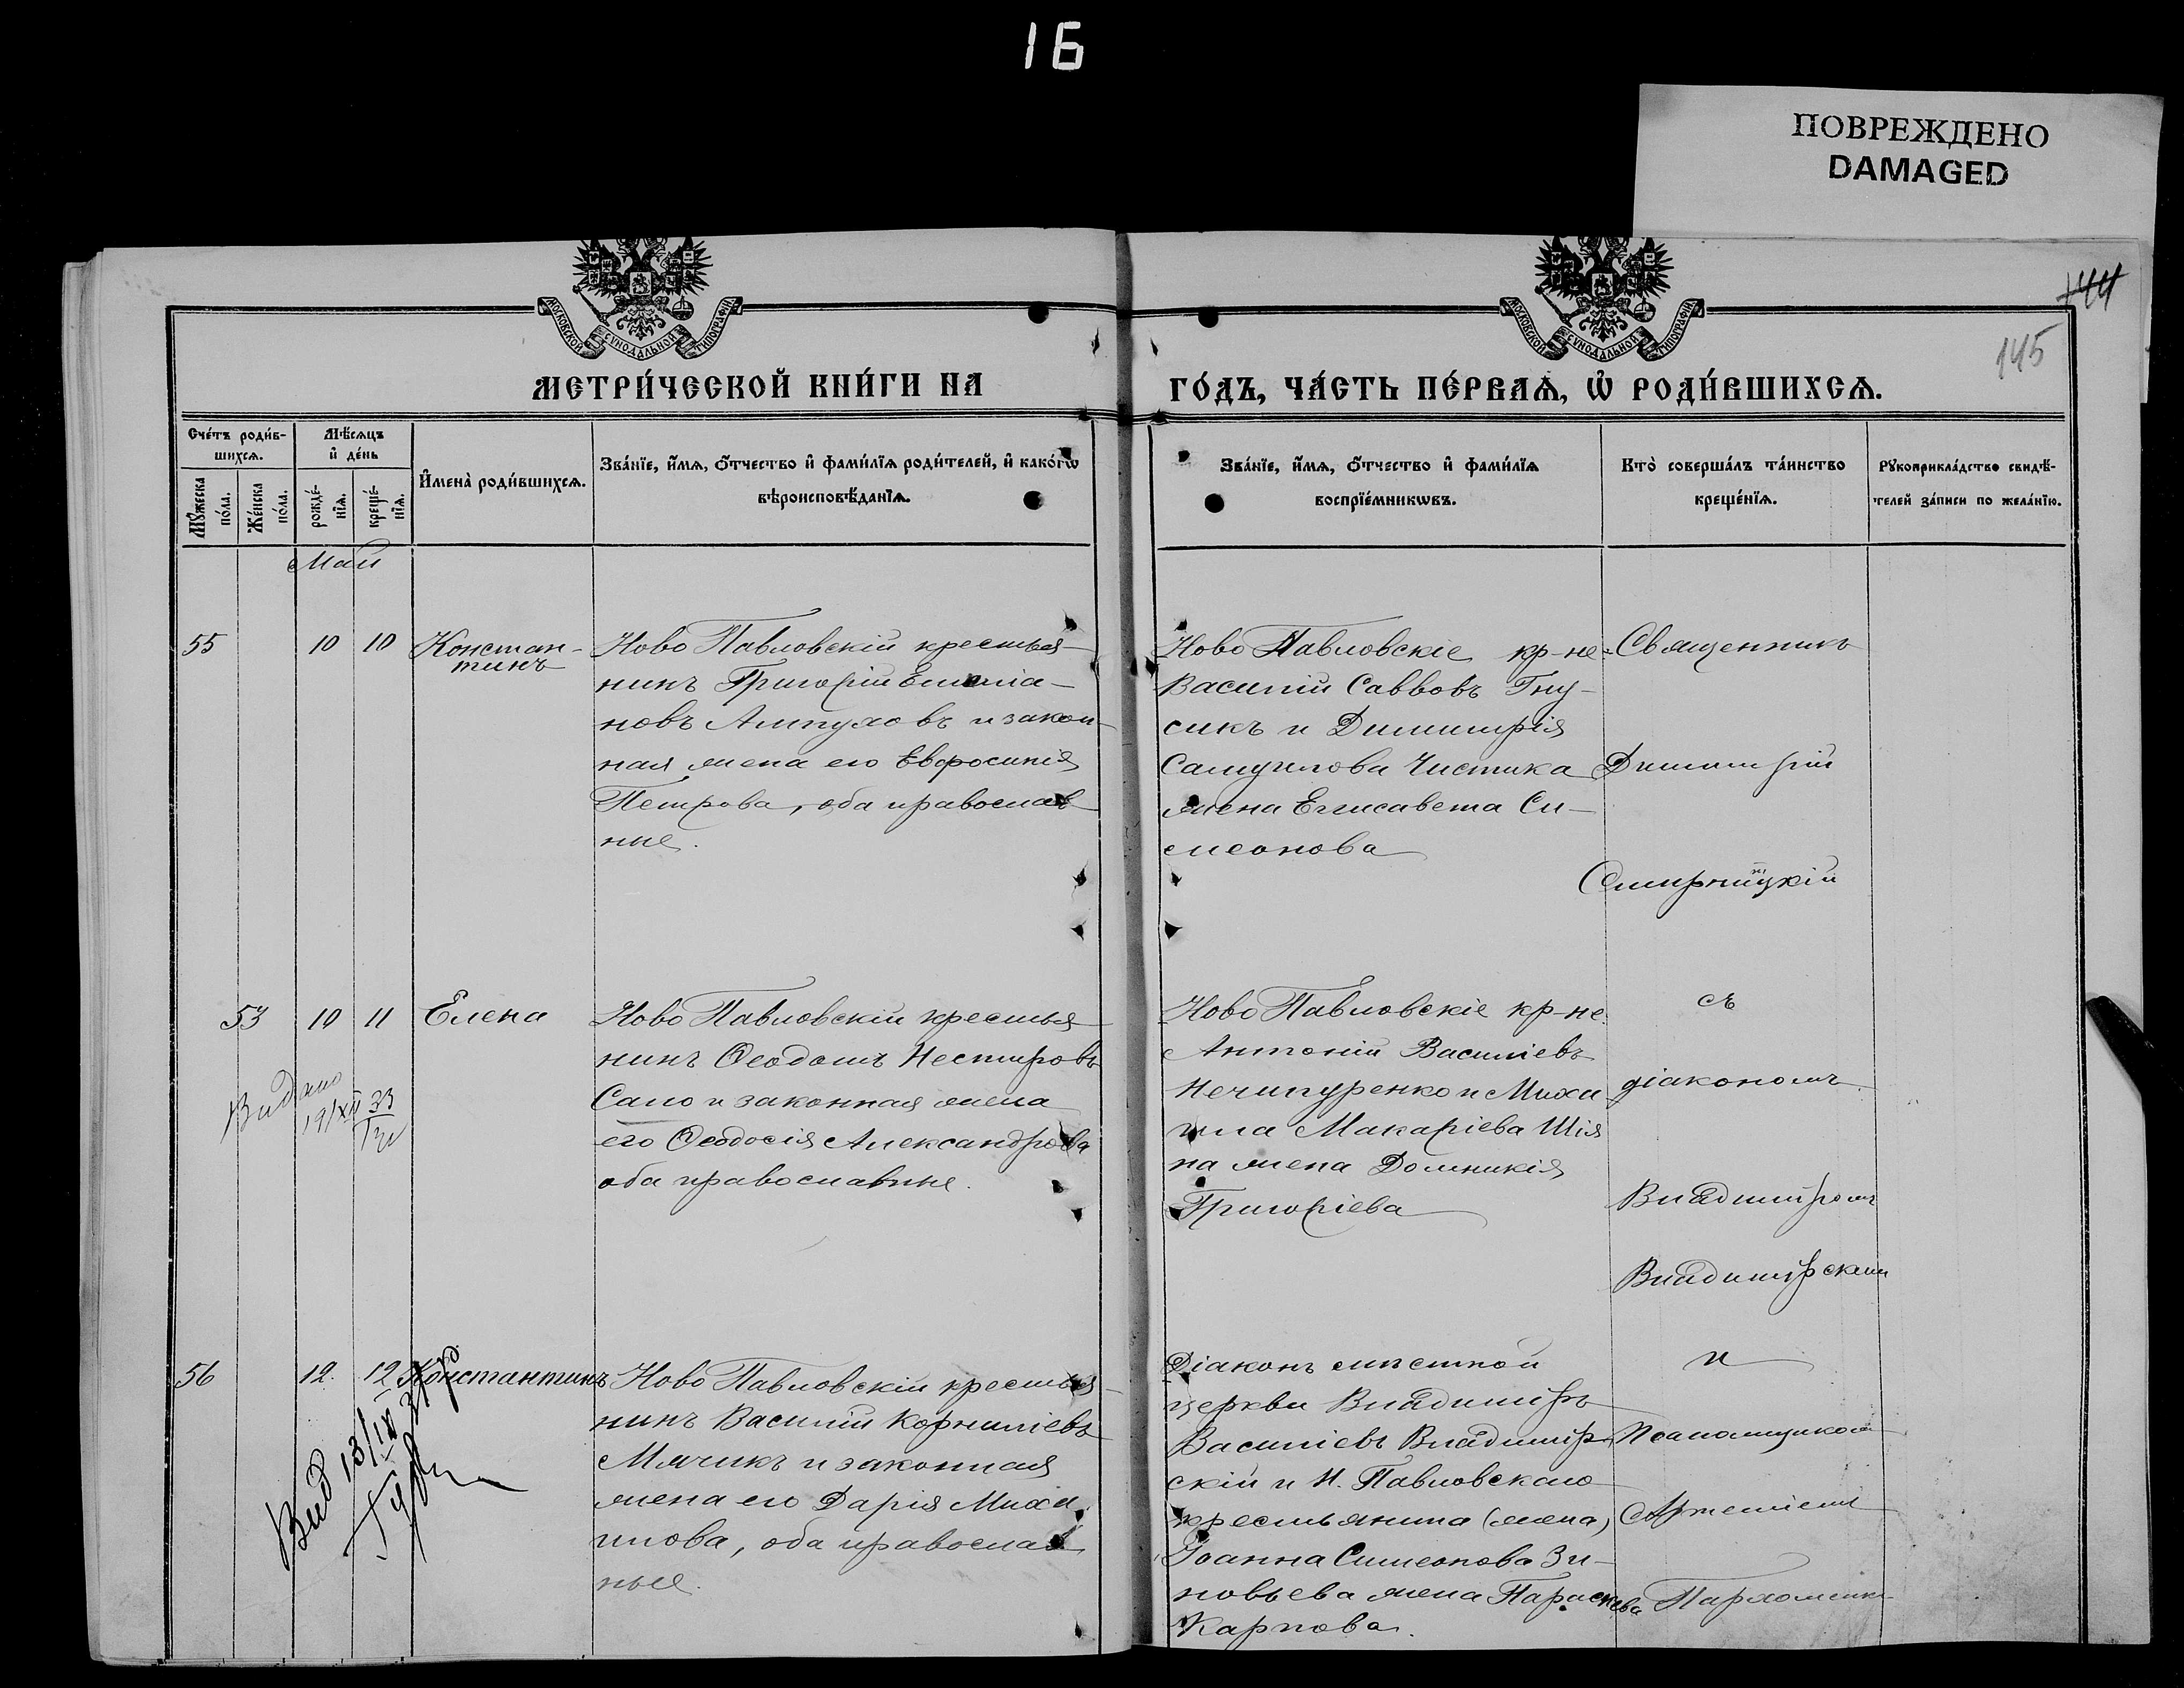 16
ПОВРЕЖДЕНО
DAMAGED
МОСКОВСКОЙ СѴНОДАЛЬНОЙ ТИПОГРАФІИ
МОСКОВСКОЙ СѴНОДАЛЬНОЙ ТИПОГРАФІИ
144
145
МЕТРИ́ЧЕСКОЙ КНИ́ГИ НА
ГО́ДЪ, ЧА́СТЬ ПЕ́РВАѦ, Ѡ҆ РОДИ́ВШИХСѦ.
Сче́тъ роди́в-
шихсѧ.
Мꙋ́жеска по́ла.
Же́нска по́ла.
Мѣ́сѧцъ
и҆ де́нь
рожде́-
нїѧ.
креще́-
нїѧ.
И҆мена̀ роди́вшихсѧ.
Зва́нїе, и҆́мѧ, ѻ҆́тчество и҆ фами́лїѧ роди́телей, и҆ како́гѡ
вѣроисповѣ́данїѧ.
Зва́нїе, и҆́мѧ, ѻ҆́тчество и҆ фами́лїѧ
воспрїе́мникѡвъ.
Кто̀ соверша́лъ та́инство
креще́нїѧ.
Рꙋкоприкла́дство свидѣ́-
телей за́писи по жела́нїю.
Май
55
10 10
Констан-
тинъ
Ново Павловскій крестья-
нинъ Григорій Емилiа-
новъ Алтуховъ и закон-
ная жена его Евфросинія
Петрова, оба православ
ные.
Ново Павловскіе кр-не:
Василій Саввовъ Гну-
сикъ и Димитрія
Самуилова Чистика
жена Елисавета Си-
меонова
Священникъ
Димитрій
Смирницкій
53 10 11 Елена
Видано
19/XII 33
Ново Павловскій крестья
нинъ Ѳеодотъ Нестеровъ
Сало и законная жена
его Ѳеодосія Александрова
оба православные.
Ново Павловскіе кр-не:
Антоній Василіевъ
Нечипуренко и Миха
ила Макаріева Шія
на жена Домникія
Григоріева
съ
діакономъ
Владиміромъ
Владимірскимъ
56 12. 12 Константинъ
Вид 13/IV
Ново Павловскій крестья-
нинъ Василій Корниліевъ
Мячикъ и законная
жена его Дарія Миха
илова, оба православ
ные.
Діаконъ мѣстной
церкви Владиміръ
Василіевъ Владимір
скій и Н. Павловскаго
крестьянина (жена)
Іоанна Симеонова Зи-
новьева жена Параскева
Карпова.
и
Псаломщикомъ
Артеміемъ
Пархоменко